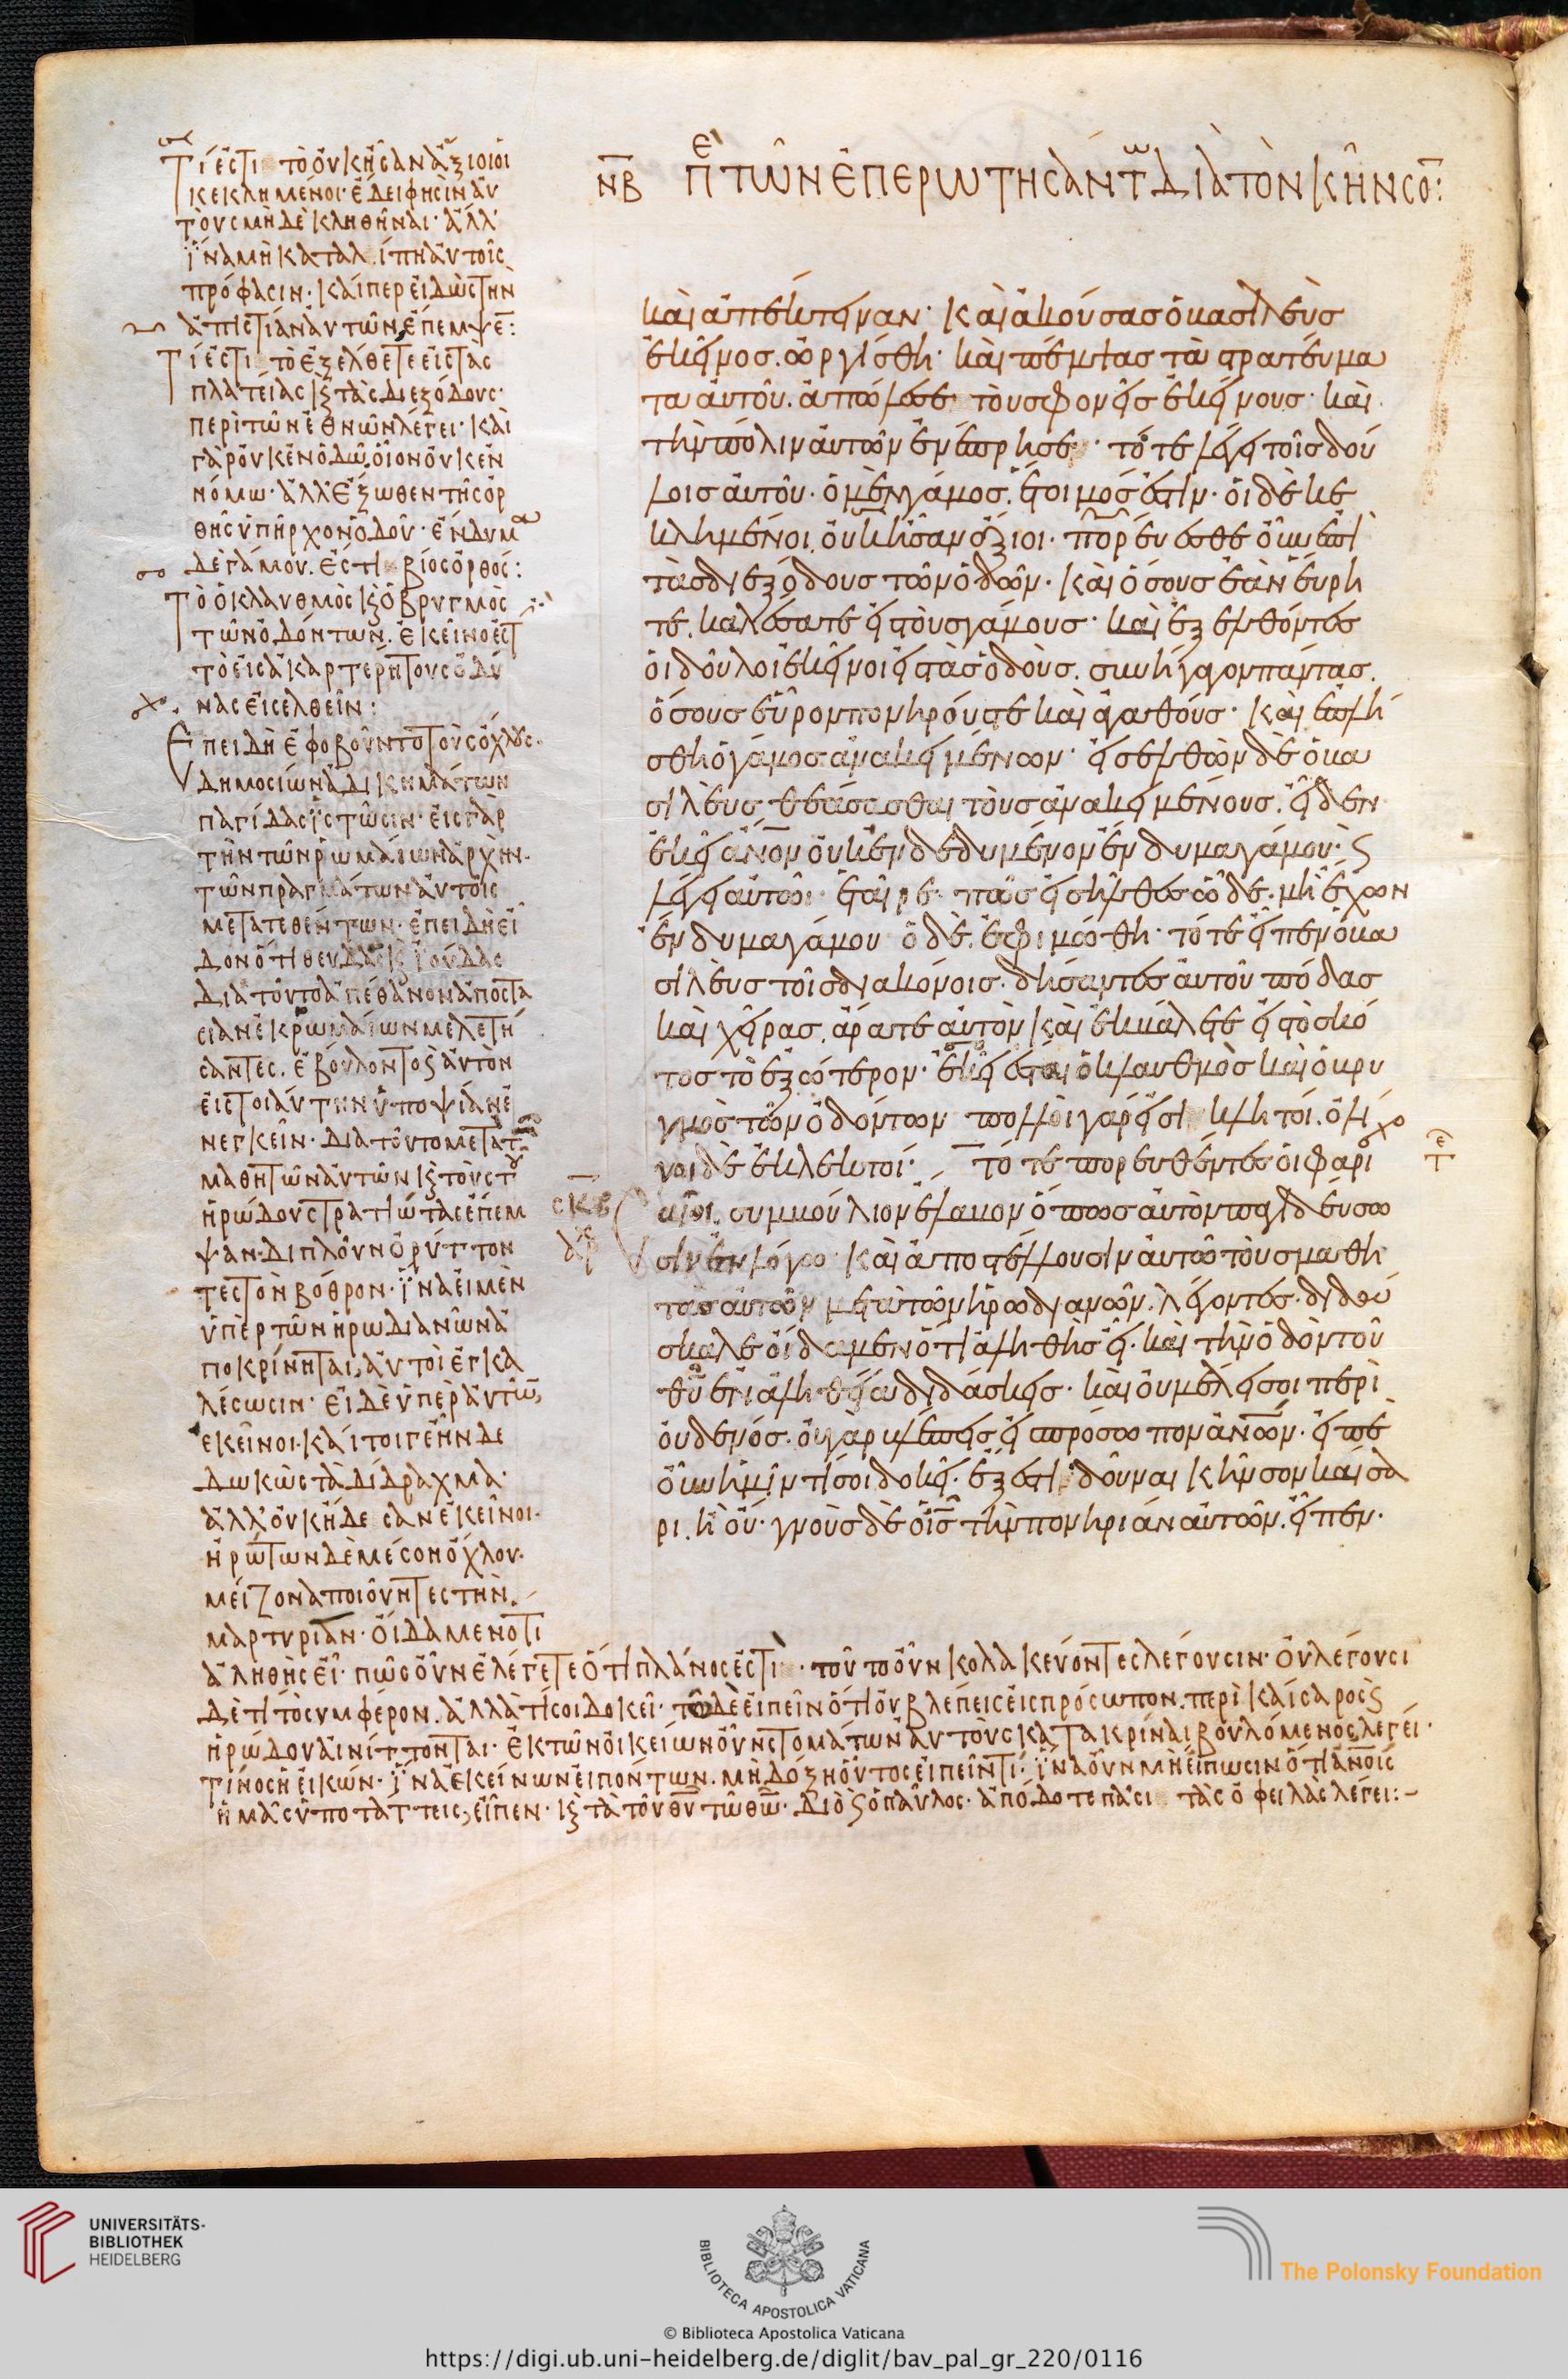 ΝΒ Περὶ τῶν ἐπερωτησάντων διὰ τὸν κῆνσον:
Τί ἐστι τὸ οὐκ ἦσαν ἄξιοι οἱ
κεκλημένοι· ἔδει φησὶν αὐ
τοὺς μηδὲ κληθῆναι· ἀλλ'
ἵνα μὴ καταλίπη αὐτοῖς
πρόφασιν· καίπερ εἰδὼς τὴν
ἀπιστίαν αὐτῶν ἔπεμψε:
Τί ἐστι τὸ ἐξέλθετε εἰς τὰς
πλατείας κ̀ τὰς διεξόδους·
περὶ τῶν ἐθνῶν λέγει· καὶ
γὰρ οὐκ ἐν ὁδῶ, οἷον οὐκ ἐν
νόμω· ἀλλ' ἔξωθεν τῆς ὀρ
θῆς ὑπῆρχον ὁδοῦ· ἔνδυμα
δὲ γάμου. ἐστὶ βίος ὀρθός:
Τὸ ὁ κλαυθμὸς κ̀ ὁ βρυγμὸς
τῶν ὀδόντων. ἐκεῖνο ἐστ
τὸ εἰς ἀκαρτερήτους ὀδύ
νας εἰσελθεῖν:
Ἐπειδὴ ἐφοβοῦντο τοὺς ὄχλους·
δημοσίων ἀδικημάτων
παγίδας ἱστῶσιν· εἰς γὰρ
τὴν τῶν ῥωμαίων ἀρχὴν·
τῶν πραγμάτων αὐτοῖς
μετατεθέντων· ἐπειδὴ εἶ
δον ὅτι θευδᾶς κ̀ ἰούδας
διὰ τοῦτο ἀπέθανον ἀποστα
σίαν ἐκ ῥωμαίων μελετή
σαντες. ἐβούλοντο κ̀ αὐτὸν
εἰς τοιαύτην ὑποψίαν ἐ
νεγκεῖν· διὰ τοῦτο μετὰ τῶν
μαθητῶν αὐτῶν κ̀ τοὺς τοῦ
ἡρώδου στρατιώτας ἔπεμ
ψαν· διπλοῦν ὀρύττον
τες τὸν βόθρον· ἵνα εἰ μὲν
ὑπὲρ τῶν ἡρωδιανῶν ἀ
ποκρίνηται, αὐτοὶ ἐγκα
λέσωσιν· εἰ δὲ ὑπὲρ αὐτῶν,
ἐκεῖνοι· καίτοιγε ἦν δε
δωκὼς τὰ δίδραχμα·
ἀλλ' οὐκ ἤδεσαν ἐκεῖνοι·
ἠρώτων δὲ μέσον ὄχλου·
μείζονα ποιοῦντες τὴν
μαρτυρίαν· οἴδαμεν ὅτι
ἀληθὴς εἶ· πῶς οὖν ἐλέγετε ὅτι πλάνος ἐστὶ· τοῦτο οὖν κολακεύοντες λέγουσιν· οὐ λέγουσι
δὲ τί τὸ συμφέρον. ἀλλὰ τί σοι δοκεῖ· τὸ δὲ εἰπεῖν ὅτι οὐ βλέπεις εἰς πρόσωπον. περὶ καίσαρος κ̀
ἡρώδου αἰνίττονται· ἐκ τῶν οἰκείων οὖν στομάτων αὐτοὺς κατακρίναι βουλόμενος λέγει·
τίνος ἡ εἰκών· ἵνα ἐκείνων εἰπόντων. μὴ δόξη οὗτος εἰπεῖν τι· ἵνα οὖν μὴ εἴπωσιν ὅτι ἀνοις
ἡμᾶς ὑποτάττεις, εἶπεν· κ̀ τὰ τοῦ θυ τῶ θω· διὸ κ̀ ὁ παῦλος· ἀπόδοτε πᾶσι τὰς ὀφειλὰς λέγει:-
καὶ ἀπέκτειναν· καὶ ἀκούσας ὁ βασιλεὺς
ἐκεῖνος. ὠργίσθη· καὶ πέμψας τὰ στρατεύμα
τα αὐτοῦ. ἀπώλεσε τοὺς φονεῖς ἐκείνους· καὶ
τὴν πόλιν αὐτῶν ἐνέπρησε· τότε λέγει τοῖς δού
λοις αὐτοῦ· ὁ μὲν γάμος. ἕτοιμός ἐστιν· οἱ δὲ κε
κλημένοι. οὐκ ἦσαν ἄξιοι· πορεύεσθε οὖν ἐπὶ
τὰς διεξόδους τῶν ὁδῶν· καὶ ὅσους ἐὰν εὕρη
τε. καλέσατε εἰς τοὺς γάμους· καὶ ἐξελθόντες
οἱ δοῦλοι ἐκεῖνοι εἰς τὰς ὁδοὺς. συνήγαγον πάντας.
ὅσους εὗρον πονηρούς τε καὶ ἀγαθούς· καὶ ἐπλή
σθη ὁ γάμος ἀνακειμένων· εἰσελθὼν δὲ ὁ βα
σιλεὺς θεάσασθαι τοὺς ἀνακειμένους. εἶδεν
ἐκεῖ ἀνον οὐκ ἐνδεδυμένον ἔνδυμα γάμου· κ̀
λέγει αὐτῶ· ἑταῖρε πῶς εἰσῆλθες ὧδε. μὴ ἔχων
ἔνδυμα γάμου· ὁ δὲ. ἐφιμώθη· τότε εἶπεν ὁ βα
σιλεὺς τοῖς διακόνοις· δήσαντες αὐτοῦ πόδας
καὶ χεῖρας. ἄρατε αὐτὸν καὶ ἐκβάλετε εἰς τὸ σκό
τος τὸ ἐξώτερον· ἐκεῖ ἔσται ὁ κλαυθμὸς καὶ ὁ βρυ
γμὸς τῶν ὀδόντων πολλοὶ γάρ εἰσι κλητοί. ὀλί
γοι δὲ ἐκλεκτοί· τότε πορευθέντες οἱ φαρι
σαῖοι. συμβούλιον ἔλαβον ὅπως αὐτὸν παγιδεύσω
σιν ἐν λόγω· καὶ ἀποστέλλουσιν αὐτῶ τοὺς μαθη
τὰς αὐτῶν μετὰ τῶν ἡρωδιανῶν. λέγοντες· διδά
σκαλε οἴδαμεν ὅτι ἀληθὴς εἶ· καὶ τὴν ὁδὸν τοῦ
θυ ἐν ἀληθείᾳ διδάσκεις· καὶ οὐ μέλει σοι περὶ
οὐδενός· οὐ γὰρ βλέπεις εἰς πρόσωπον ἀνων· εἰπὲ
οὖν ἡμῖν τί σοι δοκεῖ· ἔξεστι δοῦναι κῆνσον καίσα
ρι. ἢ οὔ· γνοὺς δὲ ὁ ις τὴν πονηρίαν αὐτῶν. εἶπεν·
ΣΚΒ
UNIVERSITÄTS-
BIBLIOTHEK
HEIDELBERG
BIBLIOTECA APOSTOLICA VATICANA
The Polonsky Foundation
© Biblioteca Apostolica Vaticana
https://digi.ub.uni-heidelberg.de/diglit/bav_pal_gr_220/0116